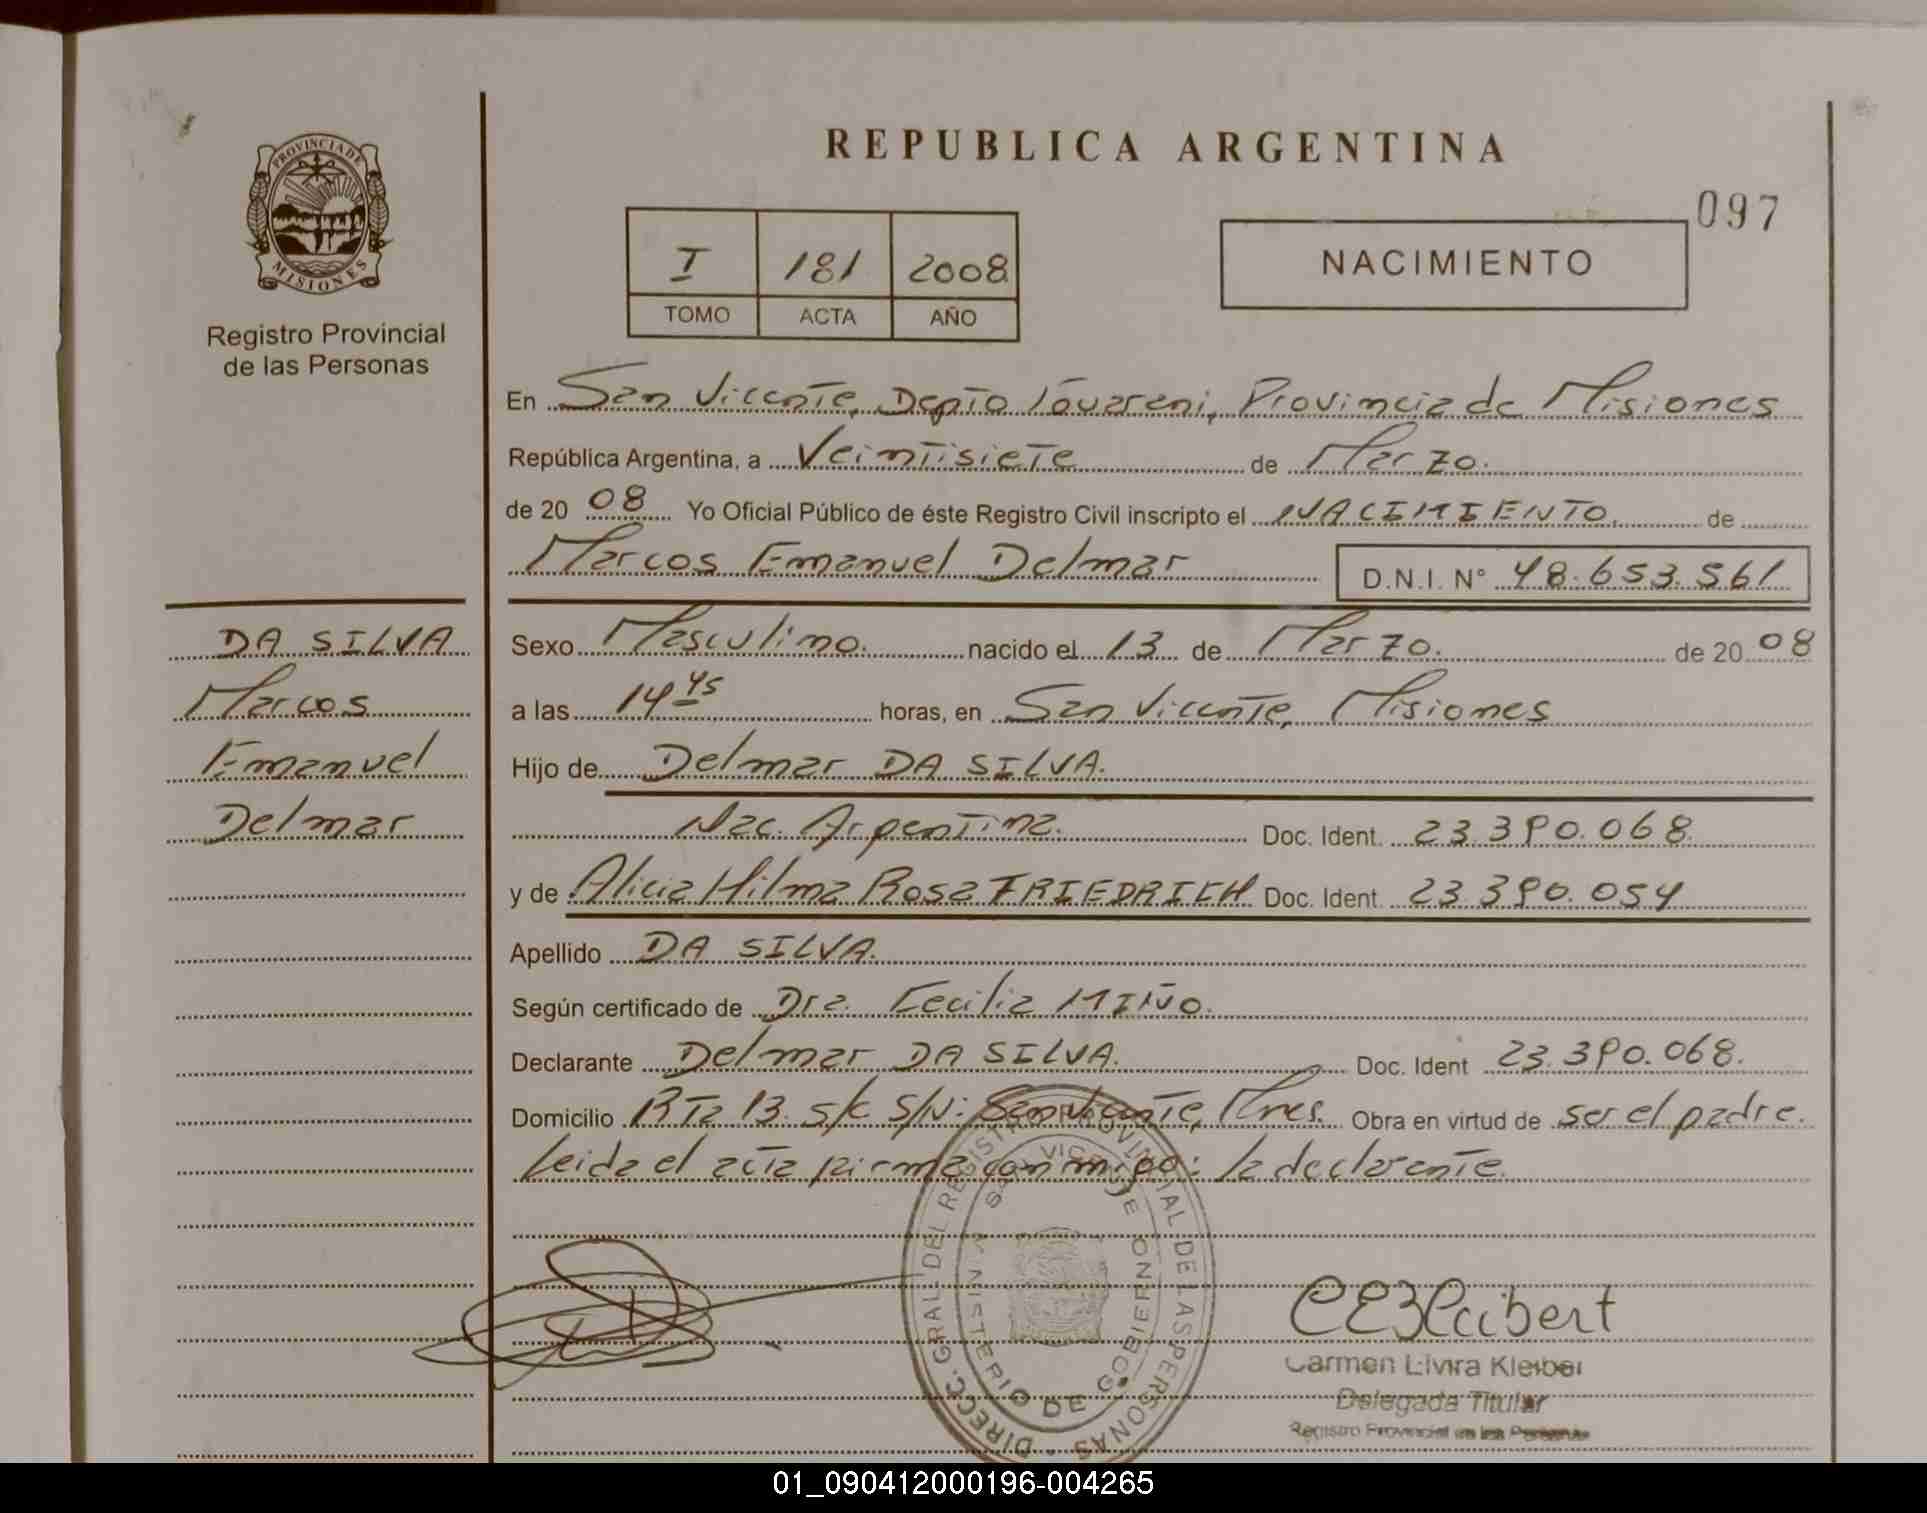 REPUBLICA ARGENTINA
097
PROVINCIA DE
MISIONES
Registro Provincial
de las Personas
I 181 2008
TOMO ACTA AÑO
NACIMIENTO
En San Vicente, Depto Guarani, Provincia de Misiones
República Argentina, a Veintisiete de Marzo.
de 20 08 Yo Oficial Público de éste Registro Civil inscripto el NACIMIENTO. de
Marcos Emanuel Delmar D.N.I. N° 48.653.561
DA SILVA
Marcos
Emanuel
Delmar
Sexo Masculino. nacido el 13 de Marzo. de 20 08
a las 14 45 horas, en San Vicente, Misiones
Hijo de Delmar DA SILVA.
Nac. Argentina. Doc. Ident. 23.390.068.
y de Alicia Hilma Rosa FRIEDRICH Doc. Ident 23.390.054
Apellido DA SILVA.
Según certificado de Dra. Cecilia MIÑO.
Declarante Delmar DA SILVA. Doc. Ident 23.390.068.
Domicilio RTa 13. S/C S/N: San Vicente, Mnes. Obra en virtud de ser el padre.
Leida el acta firma conmigo: la declarante.
DIRECC. GRAL DEL REGISTRO PROVINCIAL DE LAS PERSONAS
SAN VICENTE
MINISTERIO DE GOBIERNO
Carmen Elvira Kleiber
Delegada Titular
Registro Provincial de las Personas
01_090412000196-004265